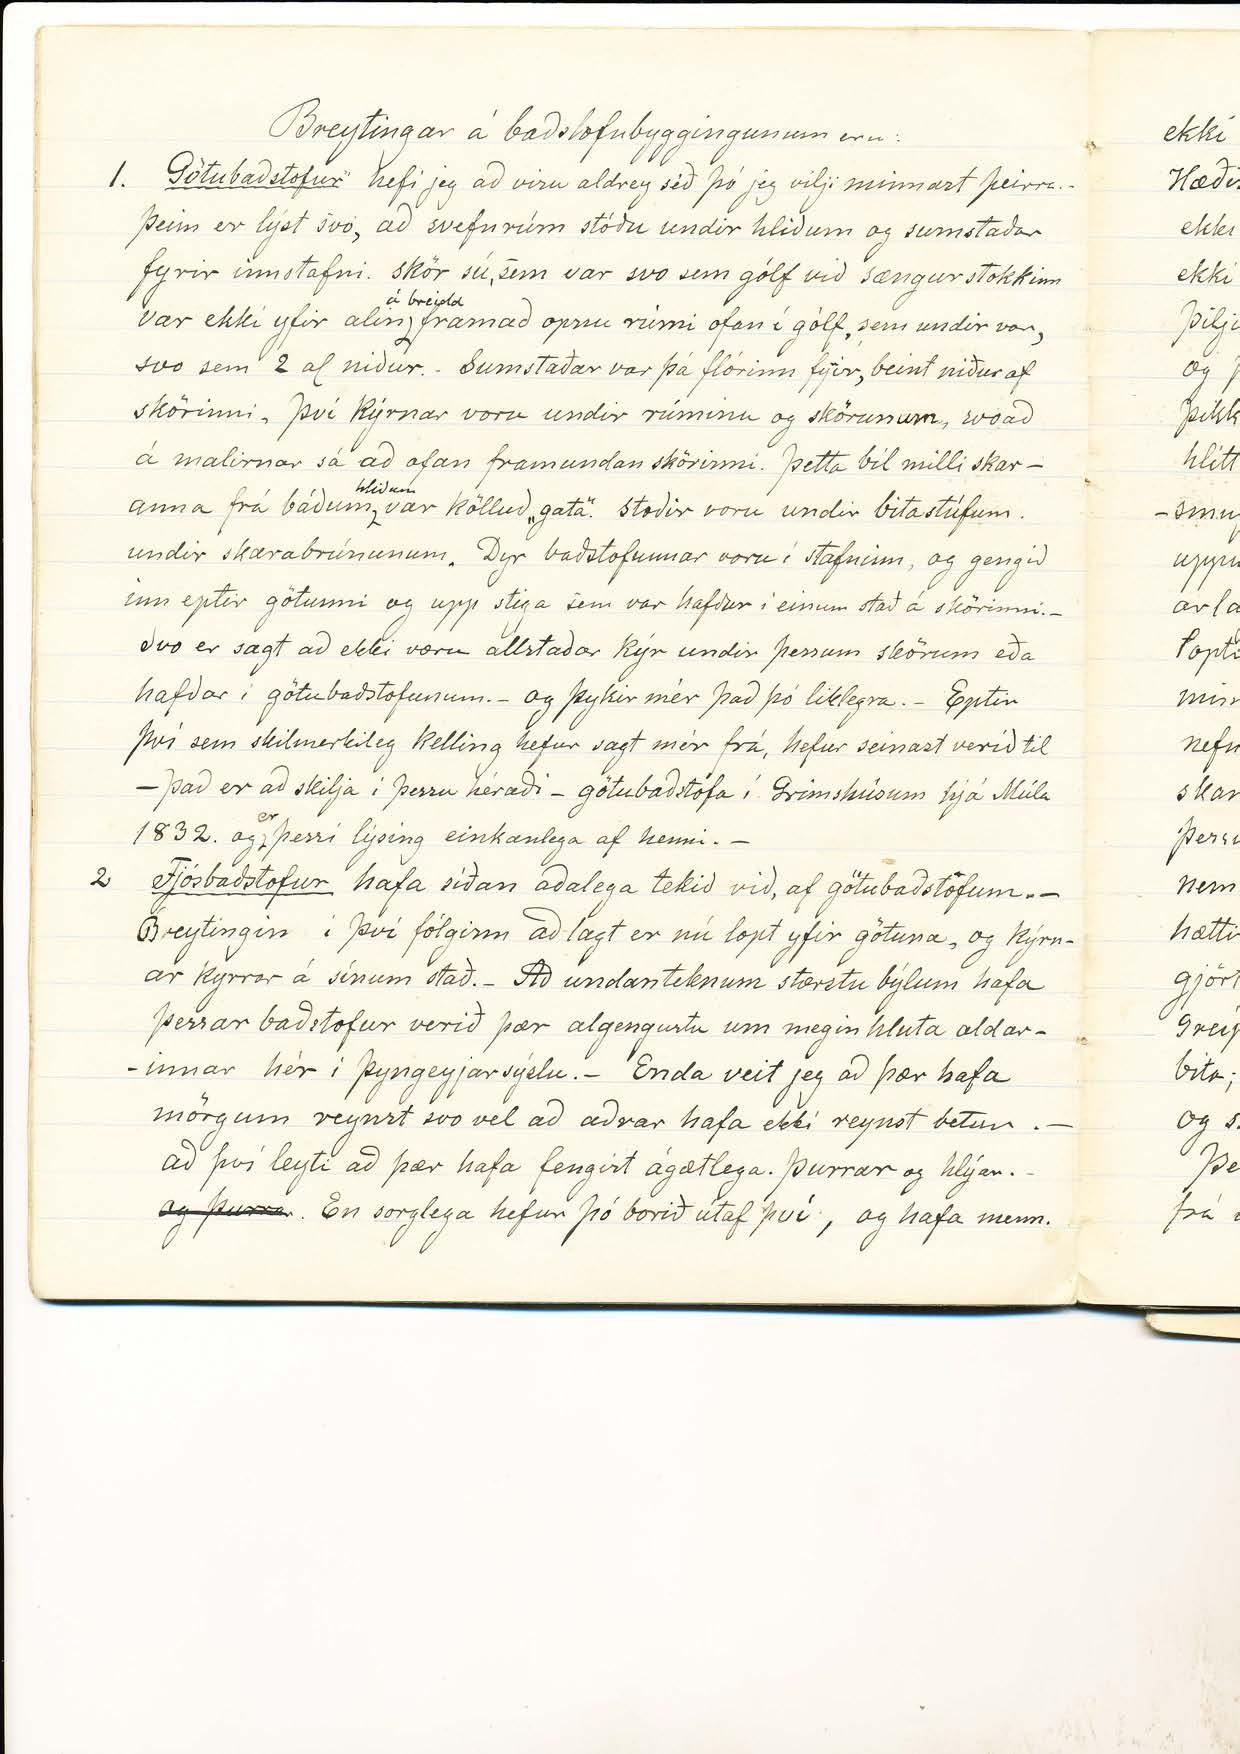 Breytingar á baðstofubyggingunum eru:
1. Götubaðstofur" hefi jeg að vizu aldrey séð þó jeg vilji minnazt þeirra.-
Þeim er lýst svo, að svefnrúm stóðu undir hliðum og sumstaðar
fyrir innstafni. Skör sú, sem var svo sem gólf við sængurstokkinn
á breidd
var ekki yfir alin, framað opnu rúmi ofan í gólf, sem undir var,
svo sem 2 al niður.- Sumstaðar var þá flórinn fyrir, beint niður af
skörinni, því kýrnar voru undir rúminu og skörunum, svo að
á malirnar sá að ofan framundan skörinni. Þetta bil milli skar-
hliðum
anna frá báðum var kölluð „gata". Stoðir voru undir bitastúfum.
undir skarabrúnunum. Dyr baðstofunnar voru í stafninn, og gengið
inn eptir götunni og upp stiga sem var hafður í einum stað á skörinni.-
Svo er sagt að ekki væru allstaðar kýr undir þessum skörum eða
hafðar í götubaðstofunum.- og þykir mér það þó liklegra.- Eptir
því sem skilmerkileg kelling hefur sagt mér frá, hefur seinazt verið til
- það er að skilja í þessu héraði - götubaðstofa í Grimshúsum hjá Múla
er
1832. og þessi lýsing einkanlega af henni.-
2 Fjósbaðstofur hafa síðan aðalega tekið við, af götubaðstöfum.-
Breytingin í því fólginn að lagt er nú lopt yfir götuna, og kýrn-
ar kyrrar á sínum stað.- Að undanteknum stærstu býlum hafa
þessar baðstofur verið þær algengustu um megin hluta aldar-
-innar hér í Þyngeyjarsýslu.- Enda veit jeg að þær hafa
mörgum reynzt svo vel að aðrar hafa ekki reynst betur.-
að því leyti að þær hafa fengizt ágætlega. Þurrar og hlýar.-
og þurrar. En sorglega hefur þó borið útaf því, og hafa menn.
ekki
ekki
ekki
þilji
og
hlitt
nem
hætti
gjört
bita;
og s.
frá